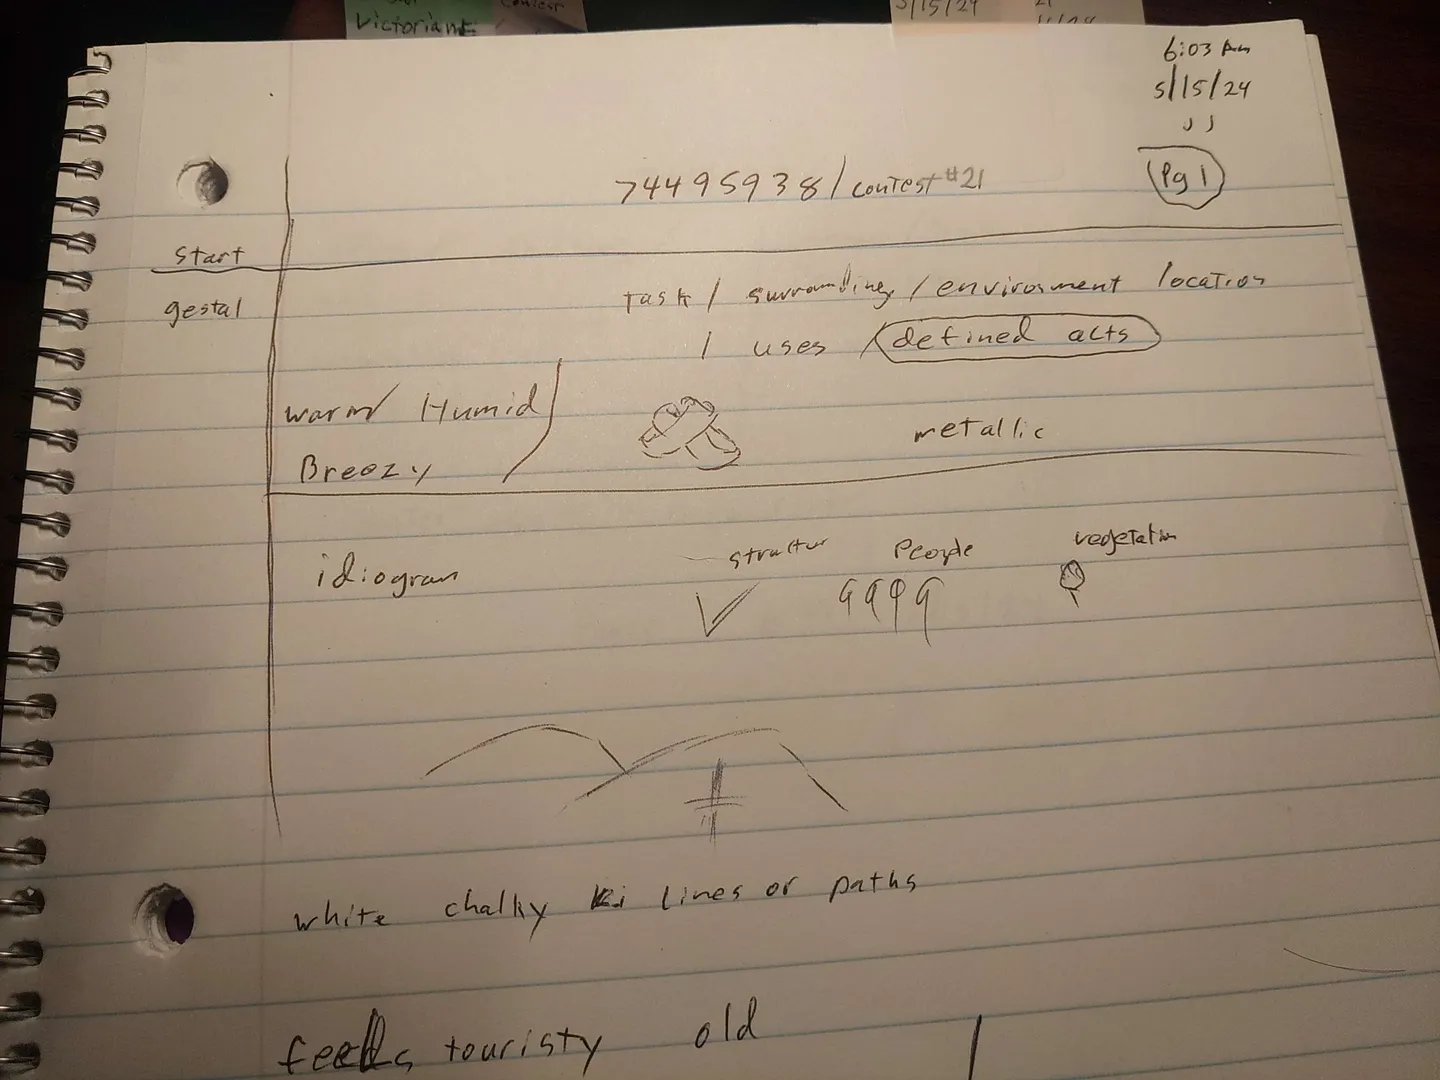 contest
Victorian
5/15/24
21
6:03 Am
5/15/24
JJ
Pg 1
74495938/contest #21
Start
gestal
Task / surrounding / environment location
/ uses / defined acts
warm Humid
Breezy
metallic
structur People vegetation
idiogram
white chalky lines or paths
feels touristy old